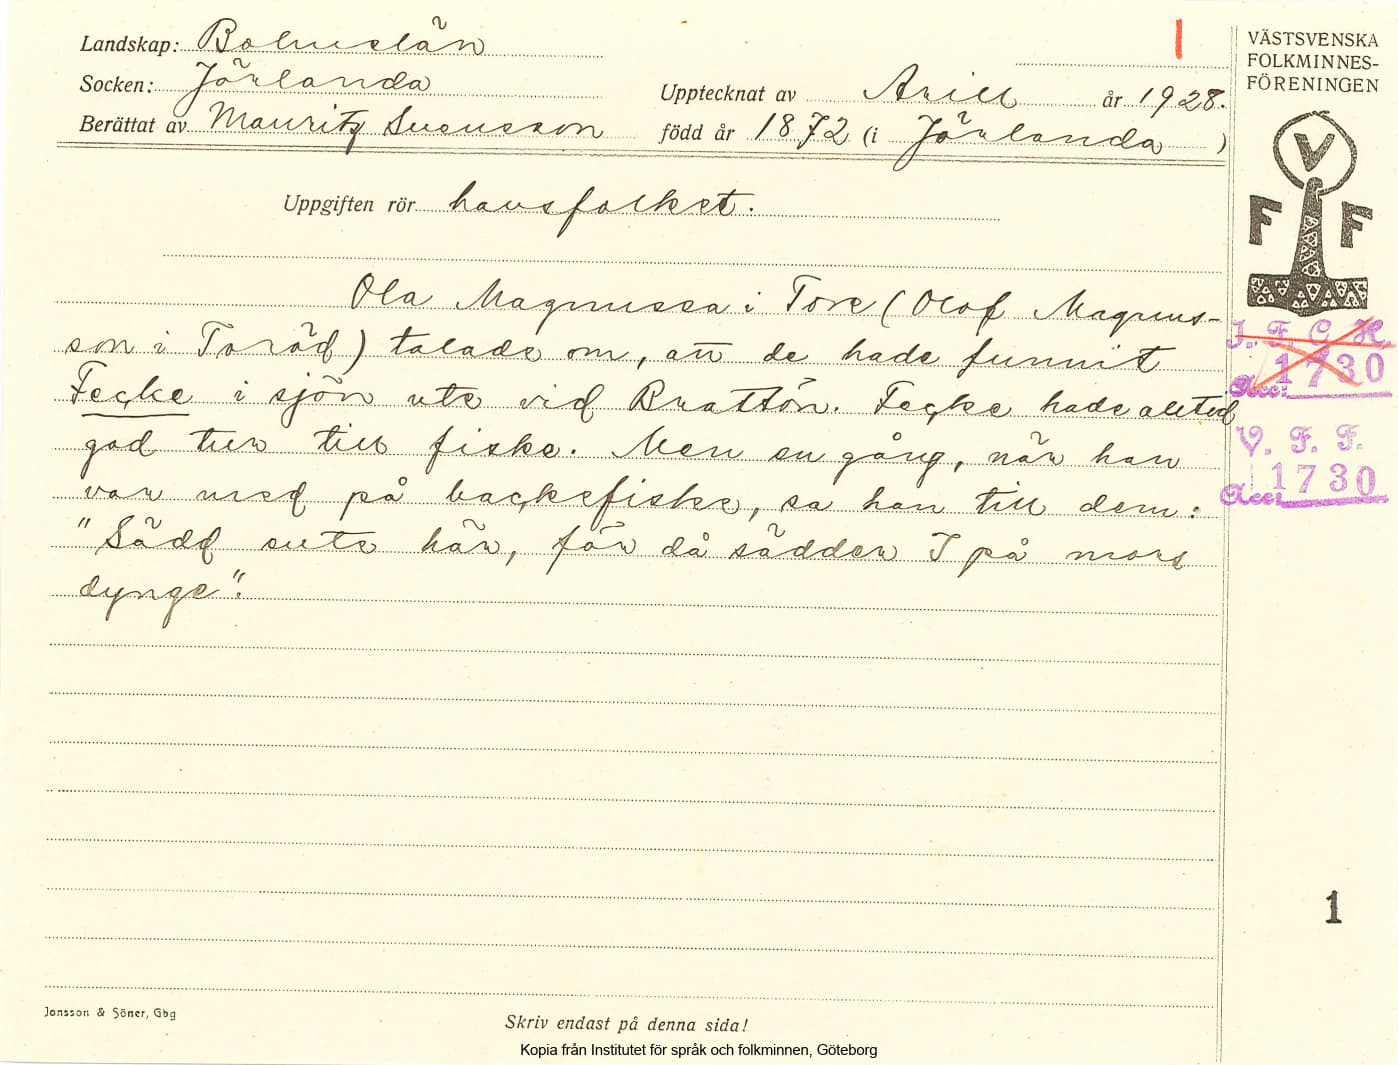 Landskap: Bohuslän
Socken: Jörlanda
Berättat av Mauritz Svensson
Upptecknat av Arill år 1928.
född år 1872 (i Jörlanda )
I
Uppgiften rör havsfolket.
Ola Magnussa i Tore (Olof Magnus-
son i Toröd) talade om, att de hade funnit
Feçke i sjön ute vid Brattön. Feçke hade alltid
god tur till fiske. Men en gång, när han
var med på backefiske, sa han till dem:
"Sädd sute här, för då sädder I på mors
dynge".
VÄSTSVENSKA
FOLKMINNES-
FÖRENINGEN
V
F F
I. F. G. H.
Acc: 1730
V. F. F.
Acc: 1730
1
Jonsson & Söner, Gbg
Skriv endast på denna sida!
Kopia från Institutet för språk och folkminnen, Göteborg